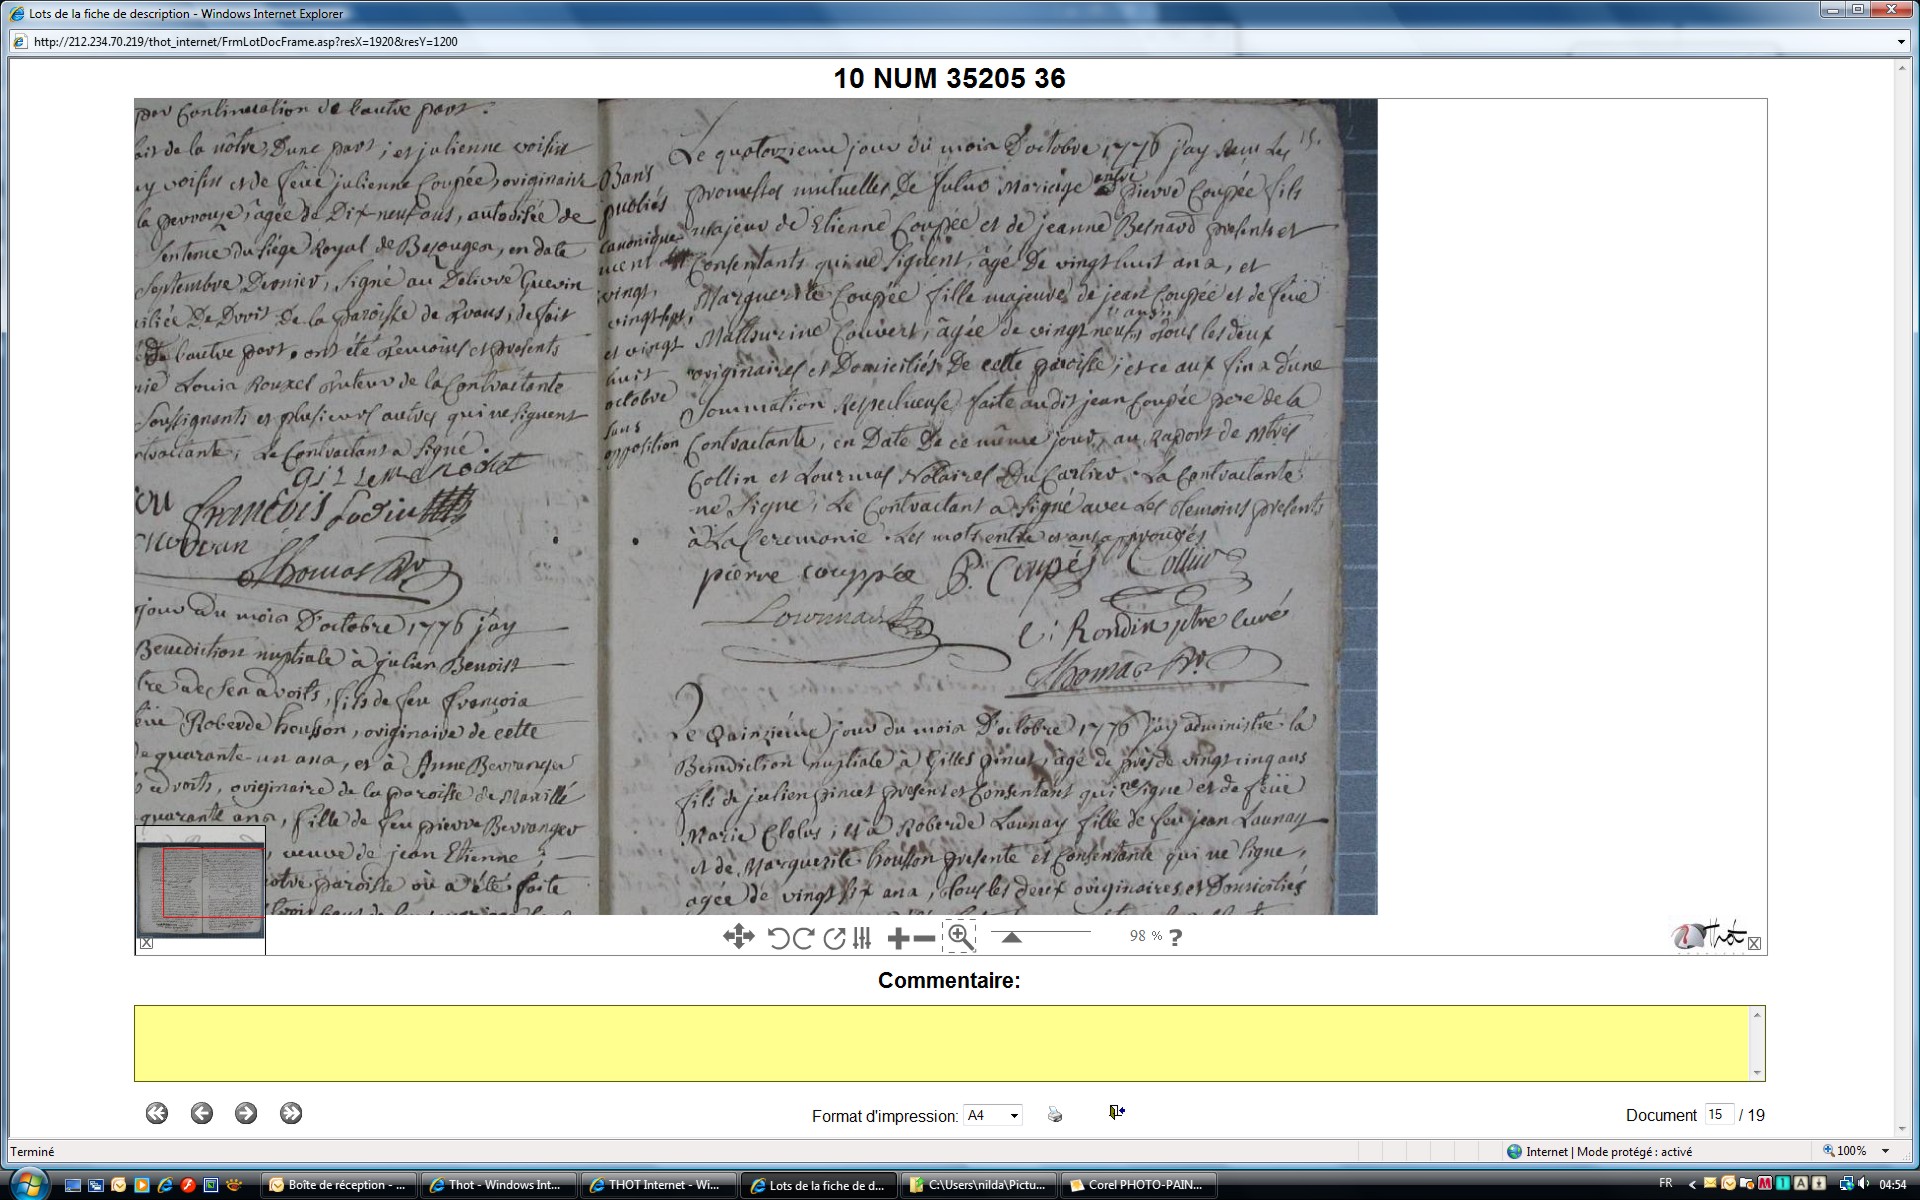 Lots de la fiche de description - Windows Internet Explorer
http://212.234.70.219/thot_internet/FrmLotDocFrame.asp?resX=1920&resY=1200
10 NUM 35205 36
par Continuation de l'autre part.
de la nôtre, Dune part ; et julienne voisin
voisin et de feüe julienne Coupée, originaire
la perrouze, âgée de Dix-neuf ans, autorisée de
sentence du siége Royal de Bazouges, en date
Septembre Dernier, signé au Délivré Guerin
De Droit de la paroisse de
de l'autre part, ont été témoins et présents
Louis Rouxel tuteur de la Contractante
soussignants et plusieurs autres qui ne signent
Le Contractant a signé.
françois
Thomas
jour du mois D'octobre 1776 j'ay
Benediction nuptiale à julien Benoist
fils de feu françois
Roberde housson, originaire de cette
de quarante-un ans, et à Anne Berranger
originaire de la paroisse de Marillé
quarante ans, fille de feu pierre Berranger
, veuve de jean Etienne ;
notre paroisse où a été faite
Bans
publiés
canonique-
ment
vingt,
vingt sept,
et vingt
huit
octobre
sans
opposition
15.
Le quatorzieme jour du mois D'octobre 1776 j'ay Les
promesses mutuelles De futur Mariage entre pierre Coupée fils
majeur de Etienne Coupée et de jeanne Besnard présents et
Consentants qui ne signent, âgé De vingt huit ans, et
Marguerite Coupée fille majeure de jean Coupée et de feüe
Mathurine Couvert, âgée de vingt neuf ans tous les deux
originaires et Domiciliés De cette paroisse ; et ce aux fins d'une
Sommation Respectueuse faite audit jean Coupée pere de la
Contractante, en Date de ce même jour, au raport de Mtres
Collin et Lournas Notaires Du Cartier. La Contractante
ne signe ; Le Contractant a signé avec Les temoins présents
à La Ceremonie. Les mots entre et ans approuvés
pierre couppée P. Coupés Collin
Rondin ptre curé
Thomas
Le Quinziéme jour du mois D'octobre 1776 j'ay administré la
Benediction nuptiale à Gilles pinut, âgé de près de vingt cinq ans
fils de julien pinut present et Consentant qui ne signe et de feüe
Marie ; et à Roberde Launay fille de feu jean Launay
et de Marguerite housson présente et Consentante qui ne signe,
agée de vingt six ans, tous les deux originaires et Domiciliés
98 %
?
Thot
Commentaire:
Format d'impression: A4
Document 15 / 19
Terminé
Internet | Mode protégé : activé
100%
Boîte de réception - ...
Thot - Windows Int...
THOT Internet - Wi...
Lots de la fiche de d...
C:\Users\nilda\Pictu...
Corel PHOTO-PAIN...
FR
04:54